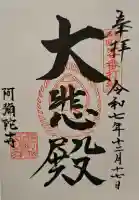 奉拝 令和七年十二月十七日
大悲殿
阿弥陀寺